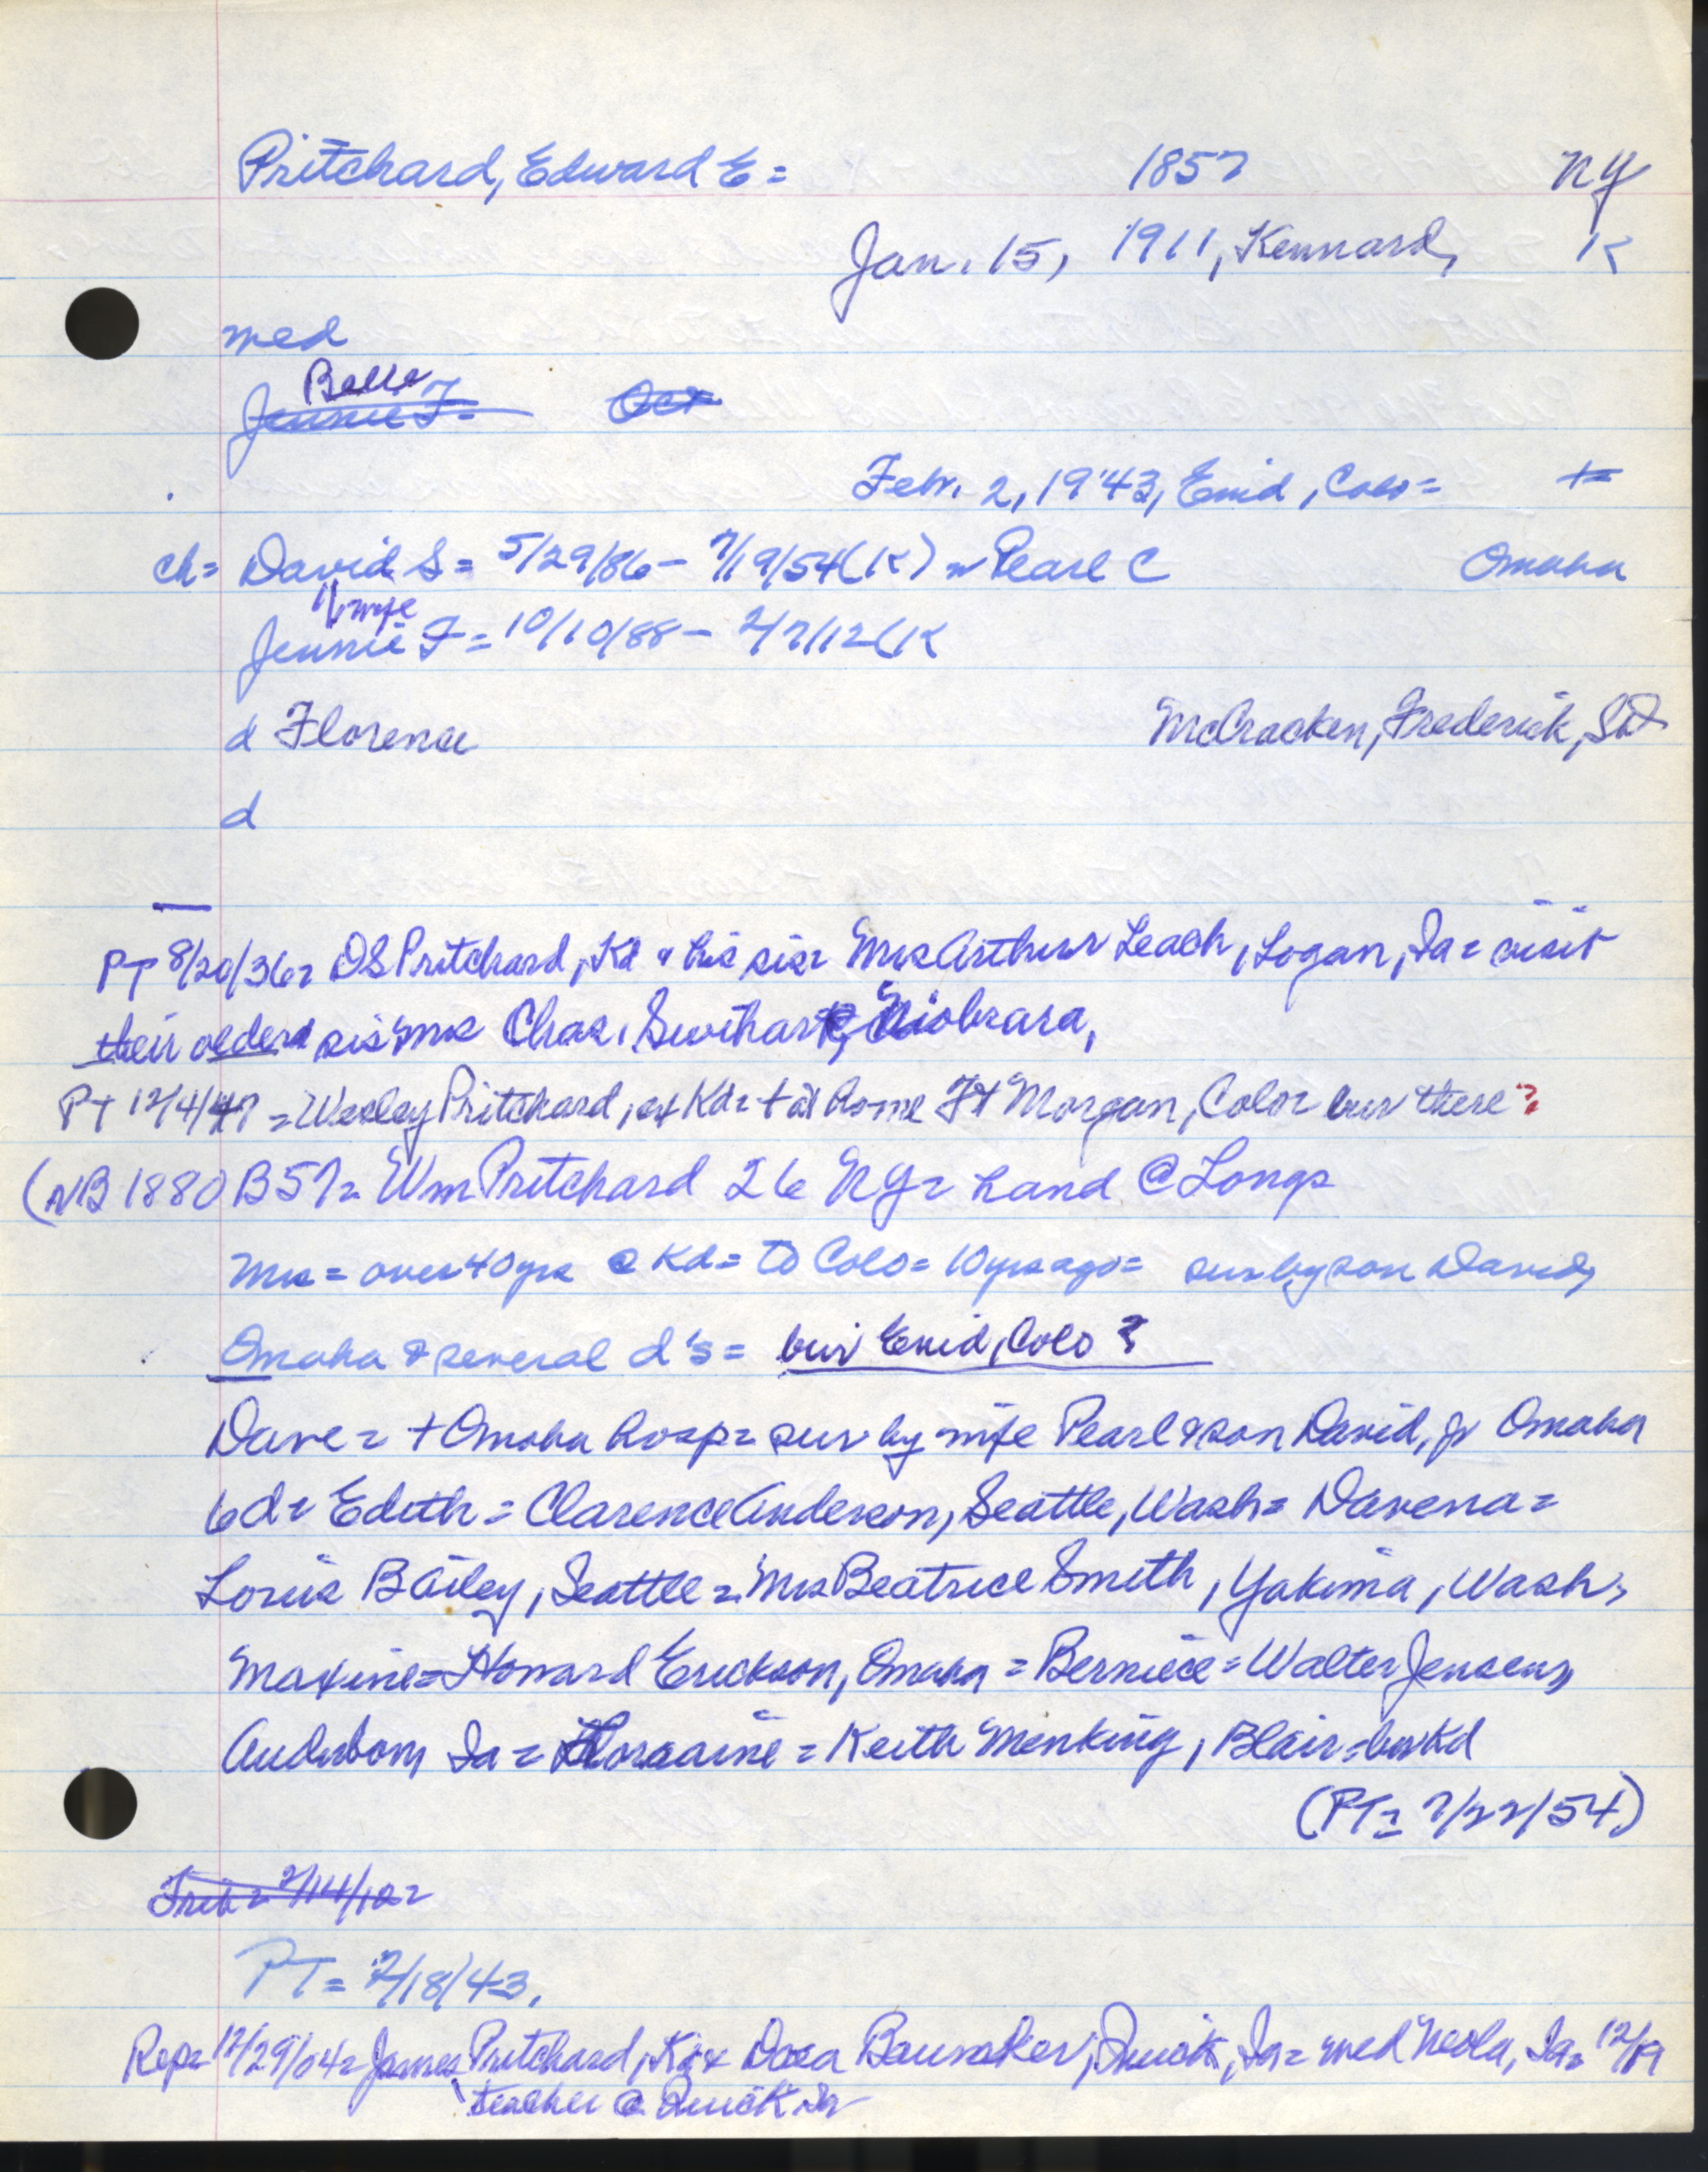 Pritchard, Edward E = 1857 NY
Jan. 15, 1911, Kennard, K
med
Belle
Jennie F = Oct
Febr. 2, 1943, Enid, Colo =
ch = David S = 5/29/86 - 7/19/54 (K) w Pearl C Omaha
1/wife
Jennie F = 10/10/88 - 2/7/12 (K
d Florence McCracken, Frederick, SD
d
PT 8/20/36 = DS Pritchard, Kd & his sis = Mrs Arthur Leach, Logan, Ia = visit
their older sis Mrs Chas. Swihart, Niobrara,
PT 12/4/47 = Wesley Pritchard, ex Kd = + at home Ft Morgan, Colo = bur there?
(NB 1880 B57 = Wm Pritchard 26 NY = hand @ Longs
Mrs = over 40 yrs @ Kd = to Colo = 10 yrs ago = sur by son David,
Omaha & several d's = bur Enid, Colo ?
Dave = + Omaha hosp = sur by wife Pearl & son David, Jr Omaha
6 d = Edith = Clarence Anderson, Seattle, Wash = Davena =
Louis Bailey, Seattle = Mrs Beatrice Smith, Yakima, Wash,
Maxine = Howard Erickson, Omaha = Berniece = Walter Jensen,
Audubon, Ia = Lorraine = Keith Menking, Blair = bur Kd
(PT = 7/22/54)
Trib = 2/14/12 =
PT = 2/18/43,
Rep = 12/29/04 = James Pritchard, Kd & Dora Bunaker, Quick, Ia = med Neola, Ia = 12/19
teacher @ Quick Ia